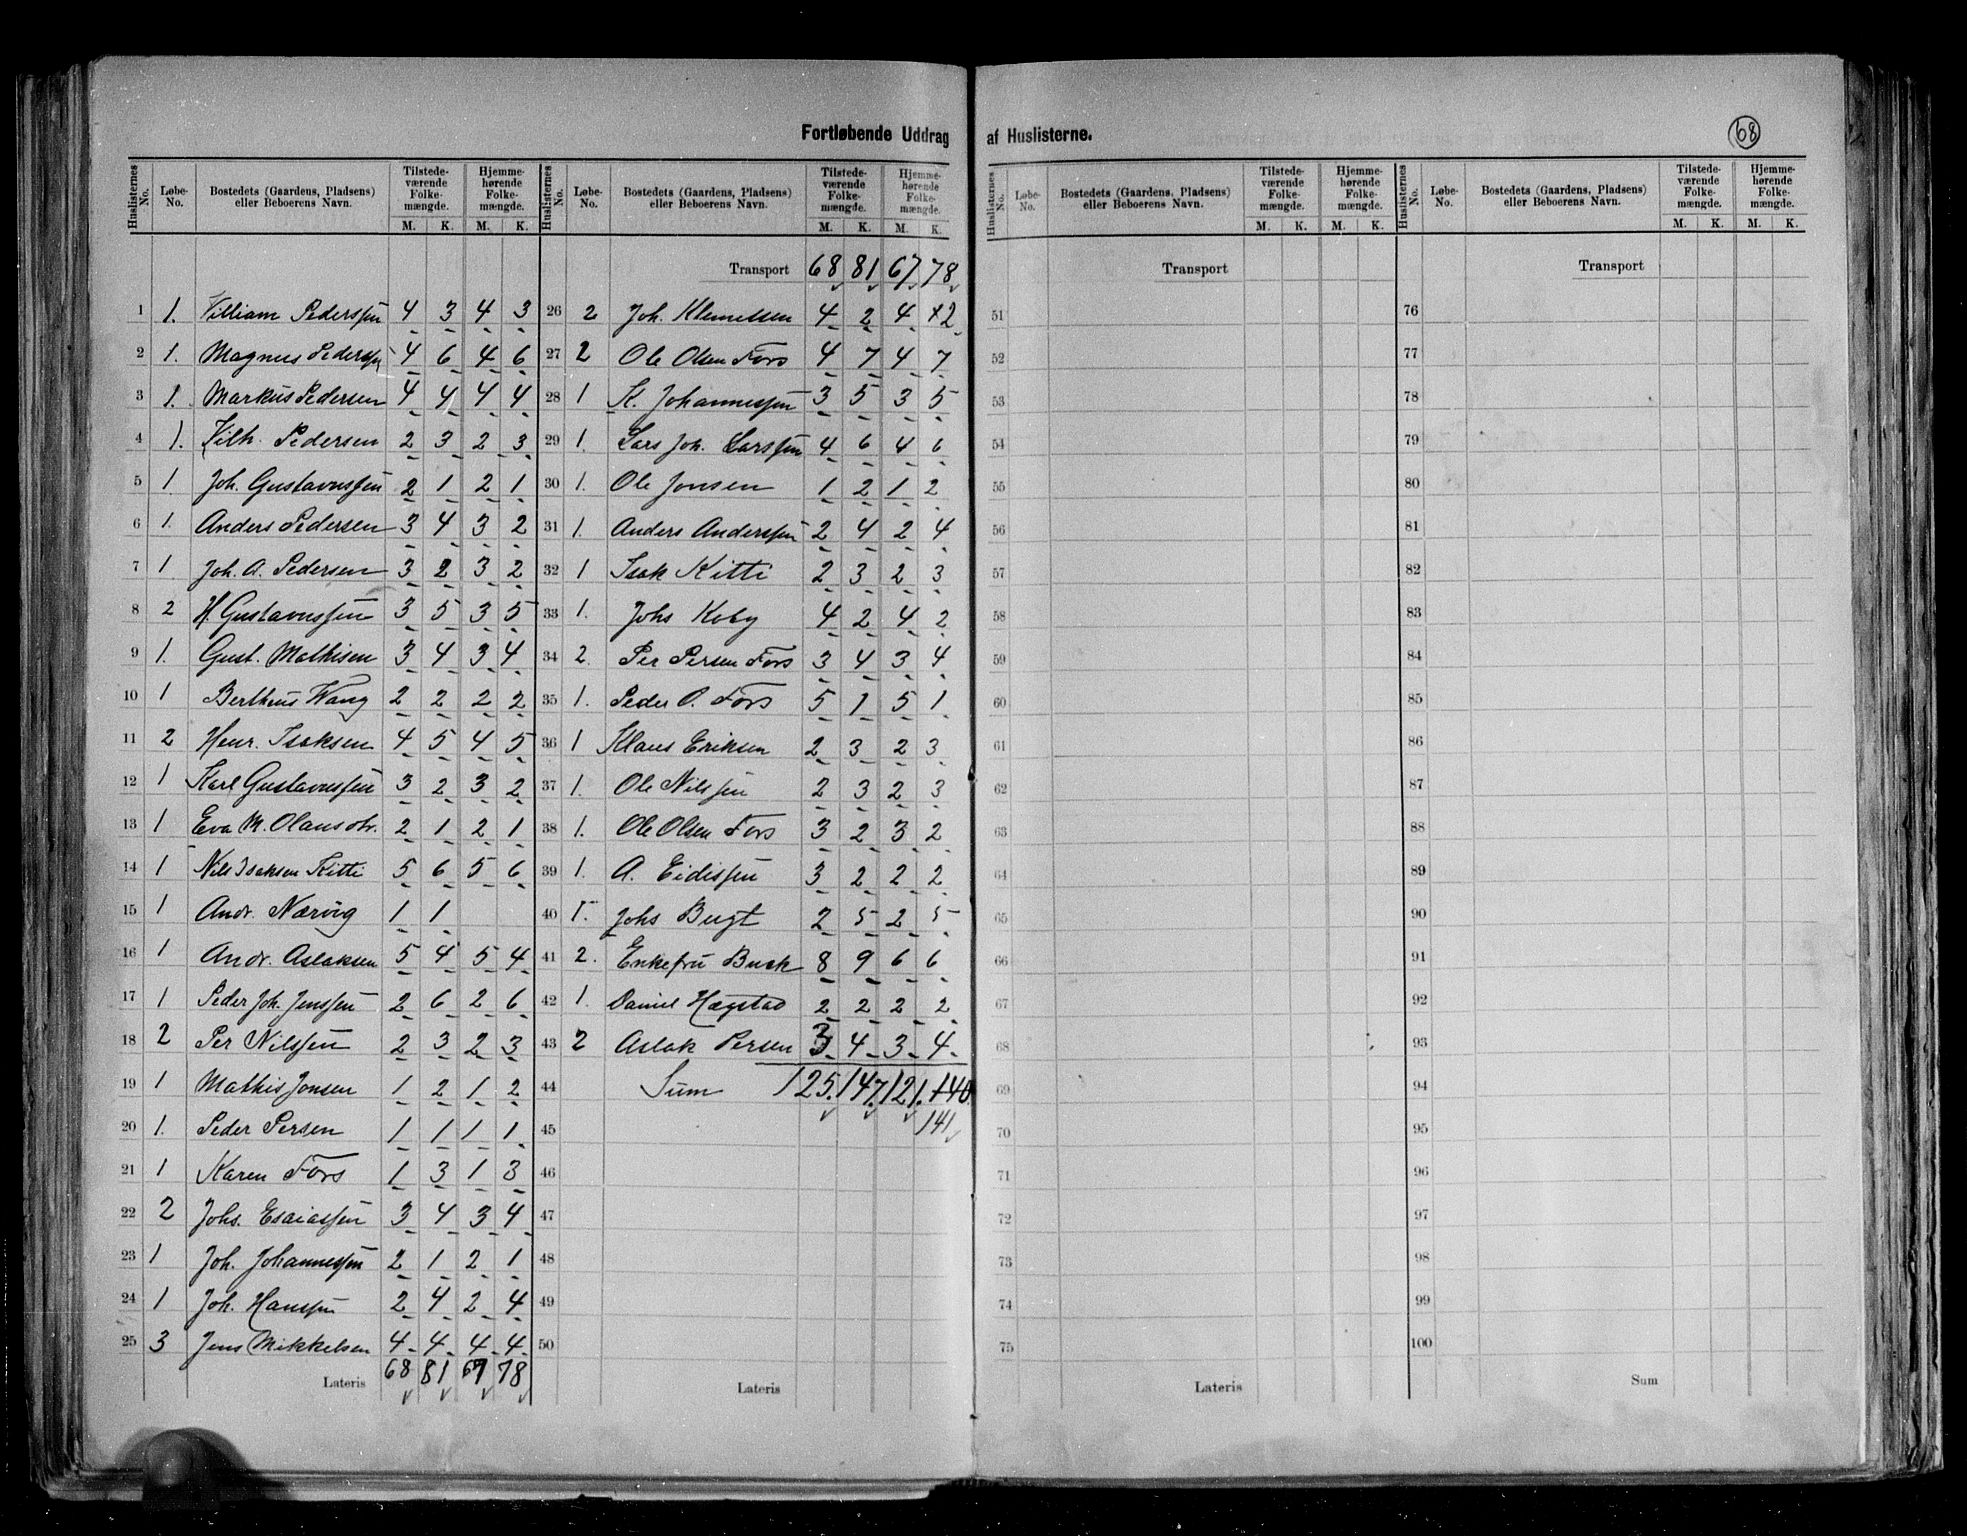 Fortløbende Uddrag af Huslisterne.
68
Huslisternes No. Løbe-No. Bostedets (Gaardens, Pladsens) eller Beboerens Navn. Tilstedeværende Folkemængde. M. K. Hjemmehørende Folkemængde. M. K.
1 1. Villiam Pederssen 4 3 4 3
2 1. Magnus Pederssen 4 6 4 6
3 1. Markus Pedersen 4 4 4 4
4 1. Vilh. Pedersen 2 3 2 3
5 1 Joh. Gustavussen 2 1 2 1
6 1. Anders Pedersen 3 4 3 2
7 1 Joh. A. Pedersen 3 2 3 2
8 2 H. Gustavussen 3 5 3 5
9 1. Gust. Mathisen 3 4 3 4
10 1 Bertheus Wang 2 2 2 2
11 2 Henr. Isaksen 4 5 4 5
12 1 Karl Gustavussen 3 2 3 2
13 1 Eva M. Olausdtr. 2 1 2 1
14 1 Nils Isaksen Kitti 5 6 5 6
15 1 Andr. Nærvig 1 1
16 1 Andr. Aslaksen 5 4 5 4
17 1 Peder Joh. Jenssen 2 6 2 6
18 2 Per Nilssen 2 3 2 3
19 1 Mathis Jonsen 1 2 1 2
20 1. Peder Persen 1 1 1 1
21 1 Karen Fors 1 3 1 3
22 2 Johs. Esaiassen 3 4 3 4
23 1 Joh. Johannessen 2 1 2 1
24 1 Joh. Hanssen 2 4 2 4
25 3 Jens Mikkelsen 4 4 4 4
Lateris 68 81 67 78
Huslisternes No. Løbe-No. Bostedets (Gaardens, Pladsens) eller Beboerens Navn. Tilstedeværende Folkemængde. M. K. Hjemmehørende Folkemængde. M. K.
Transport 68 81 67 78
26 2 Joh. Klemetsen 4 2 4 2
27 2 Ole Olsen Fors 4 7 4 7
28 1 K. Johannessen 3 5 3 5
29 1. Lars Joh. Larssen 4 6 4 6
30 1. Ole Jonsen 1 2 1 2
31 1. Anders Anderssen 2 4 2 4
32 1 Isak Kitti 2 3 2 3
33 1. Johs Koby 4 2 4 2
34 2. Per Persen Fors 3 4 3 4
35 1. Peder O. Fors 5 1 5 1
36 1 Klaus Eriksen 2 3 2 3
37 1. Ole Nilssen 2 3 2 3
38 1. Ole Olsen Fors 3 2 3 2
39 1. A. Eidissen 3 2 2 2
40 1. Johs Bugt 2 5 2 5
41 2. Enkefru Buck 8 9 6 6
42 1. Daniel Hægstad 2 2 2 2
43 2 Aslak Persen 3 4 3 4
44 Sum 125. 147. 121. 140
45 141
46
47
48
49
50
Lateris
Huslisternes No. Løbe-No. Bostedets (Gaardens, Pladsens) eller Beboerens Navn. Tilstedeværende Folkemængde. M. K. Hjemmehørende Folkemængde. M. K.
Transport
51
52
53
54
55
56
57
58
59
60
61
62
63
64
65
66
67
68
69
70
71
72
73
74
75
Lateris
Huslisternes No. Løbe-No. Bostedets (Gaardens, Pladsens) eller Beboerens Navn. Tilstedeværende Folkemængde. M. K. Hjemmehørende Folkemængde. M. K.
Transport
76
77
78
79
80
81
82
83
84
85
86
87
88
89
90
91
92
93
94
95
96
97
98
99
100
Sum